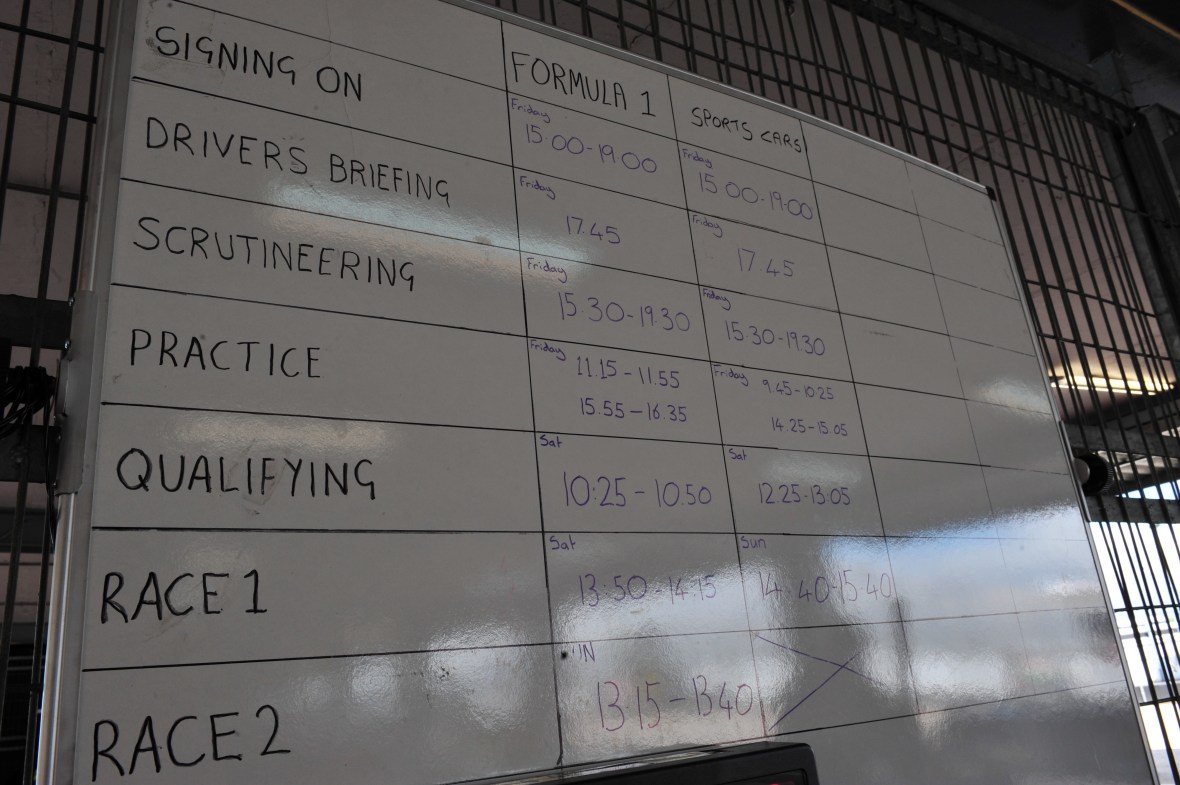 FORMULA 1 SPORTS CARS
SIGNING ON Friday 15 00-19:00 Friday 15 00-19:00
DRIVERS BRIEFING Friday 17.45 Friday 17.45
SCRUTINEERING Friday 15.30-19.30 Friday 15.30-19.30
PRACTICE Friday 11.15-11.55 Friday 9.45-10.25
15.55-16.35 14.25-15.05
QUALIFYING Sat 10:25-10.50 Sat 12.25-13.05
RACE 1 Sat 13:50-14:15 Sun 14.40-15.40
RACE 2 13 15-13 40